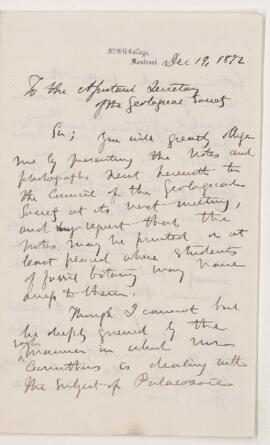 McGill College,
Montreal Dec 19, 1872
To the Assistant Secretary
of the Geological Society
Sir; You will greatly oblige
me by presenting the Notes and
photographs sent herewith to
the Council of the Geological
Society at its next meeting,
and request that the
Notes may be printed or at
least placed where students
of fossil botany may have
access to them.
Though I cannot but
be deeply grieved by the
manner in which Mr
Carruthers is dealing with
the subject of Palaeozoic